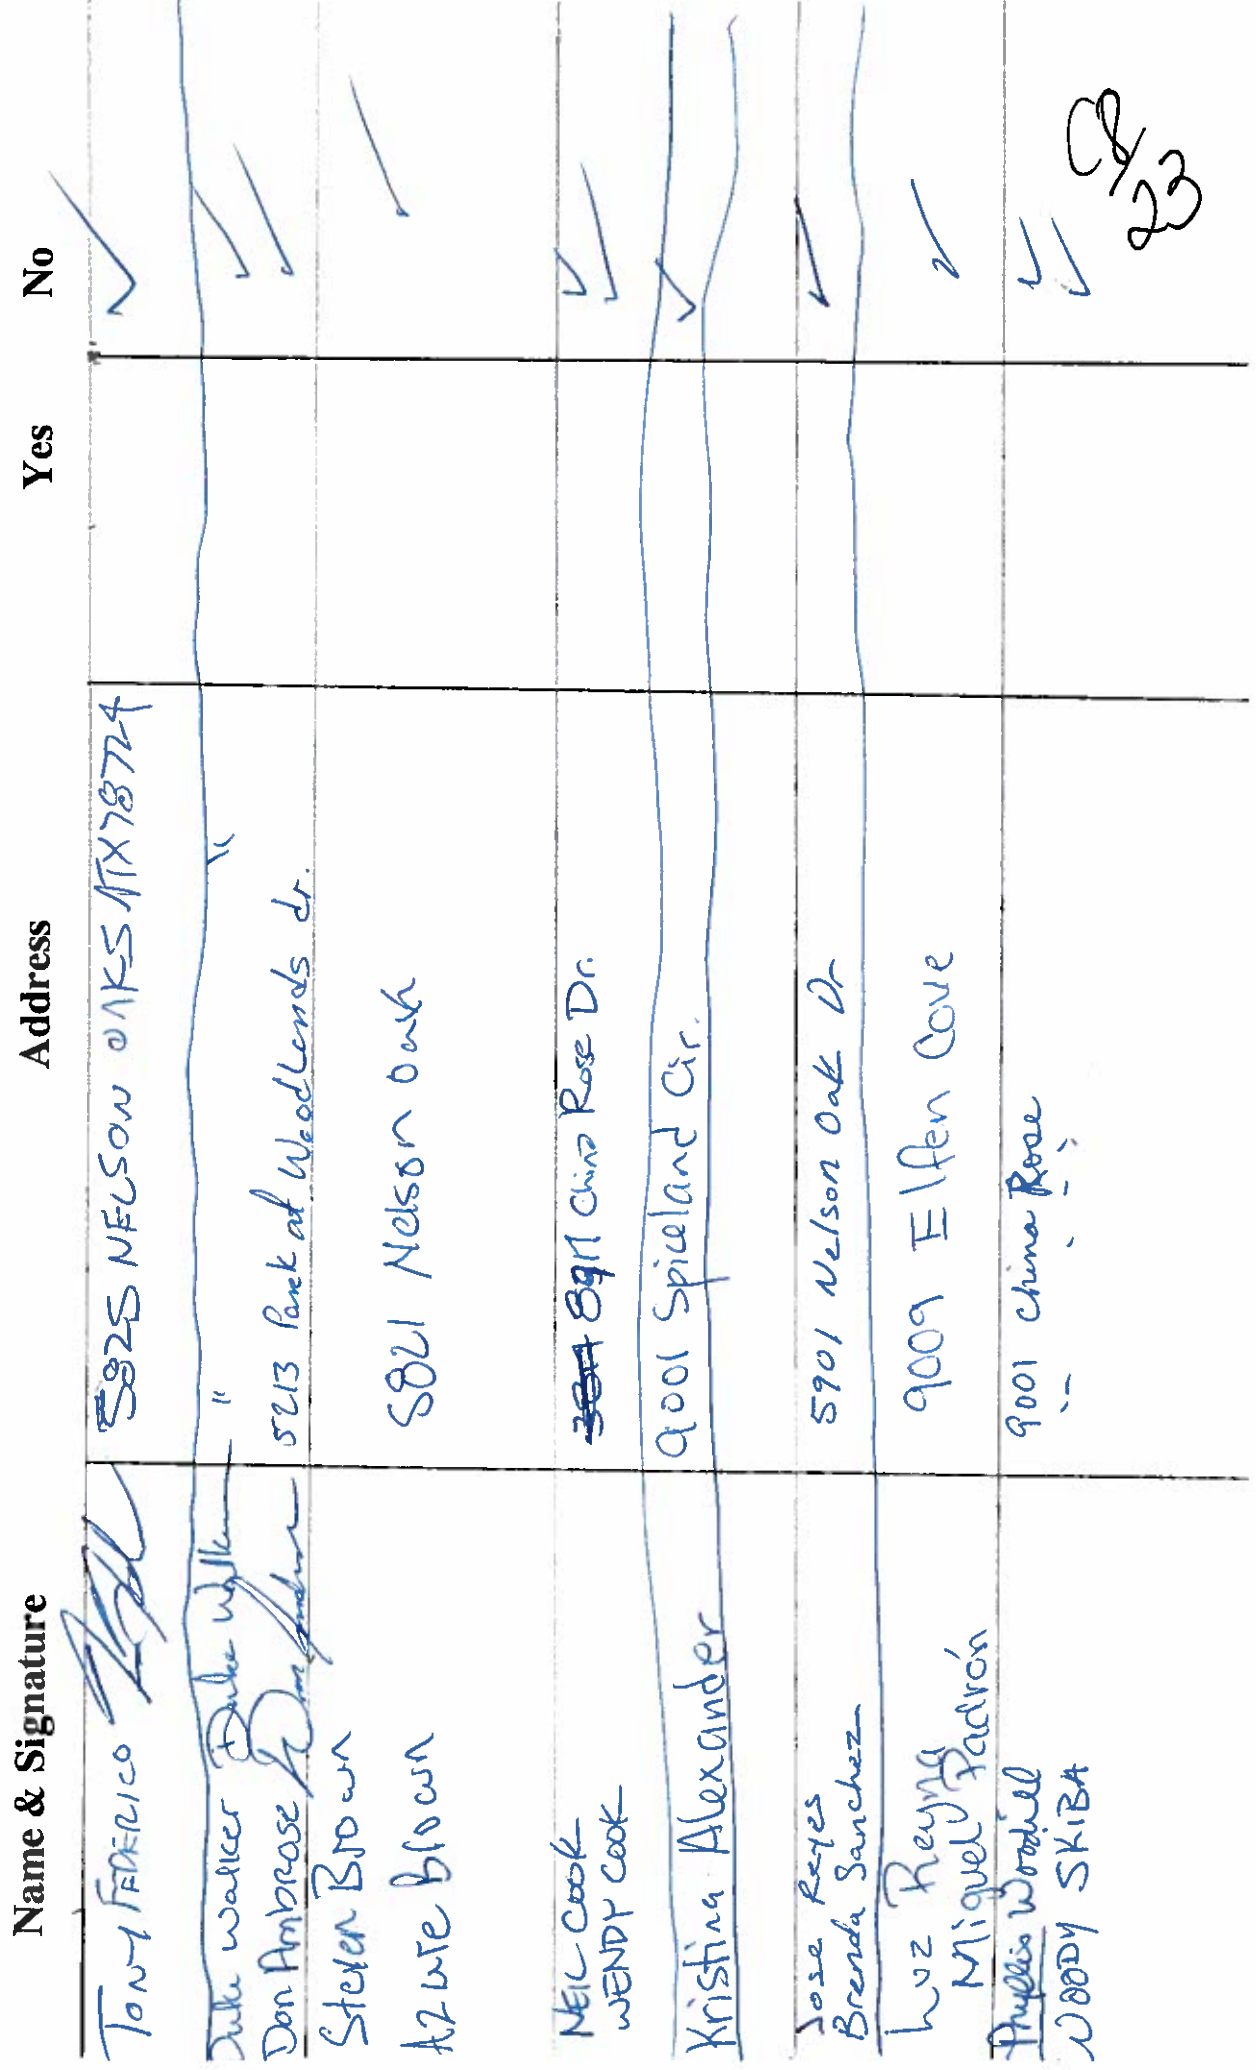 Name & Signature Address Yes No
TONY FEDERICO 5825 NELSON OAKS ATX 78724
Duke Walker Duke Walker " "
Don Ambrose 5213 Park at Woodlands dr.
Steven Brown
Azure Brown 5821 Nelson Oak
NEIL COOK 8917 China Rose Dr.
WENDY COOK
Kristina Alexander 9001 Spiceland Cir.
Jose Reyes 5901 Nelson Oak Dr
Brenda Sanchez
Luz Reyna 9009 Elfen Cove
Miguel Padrón
Phyllis Woodill 9001 China Rose
WOODY SKIBA
C8/23